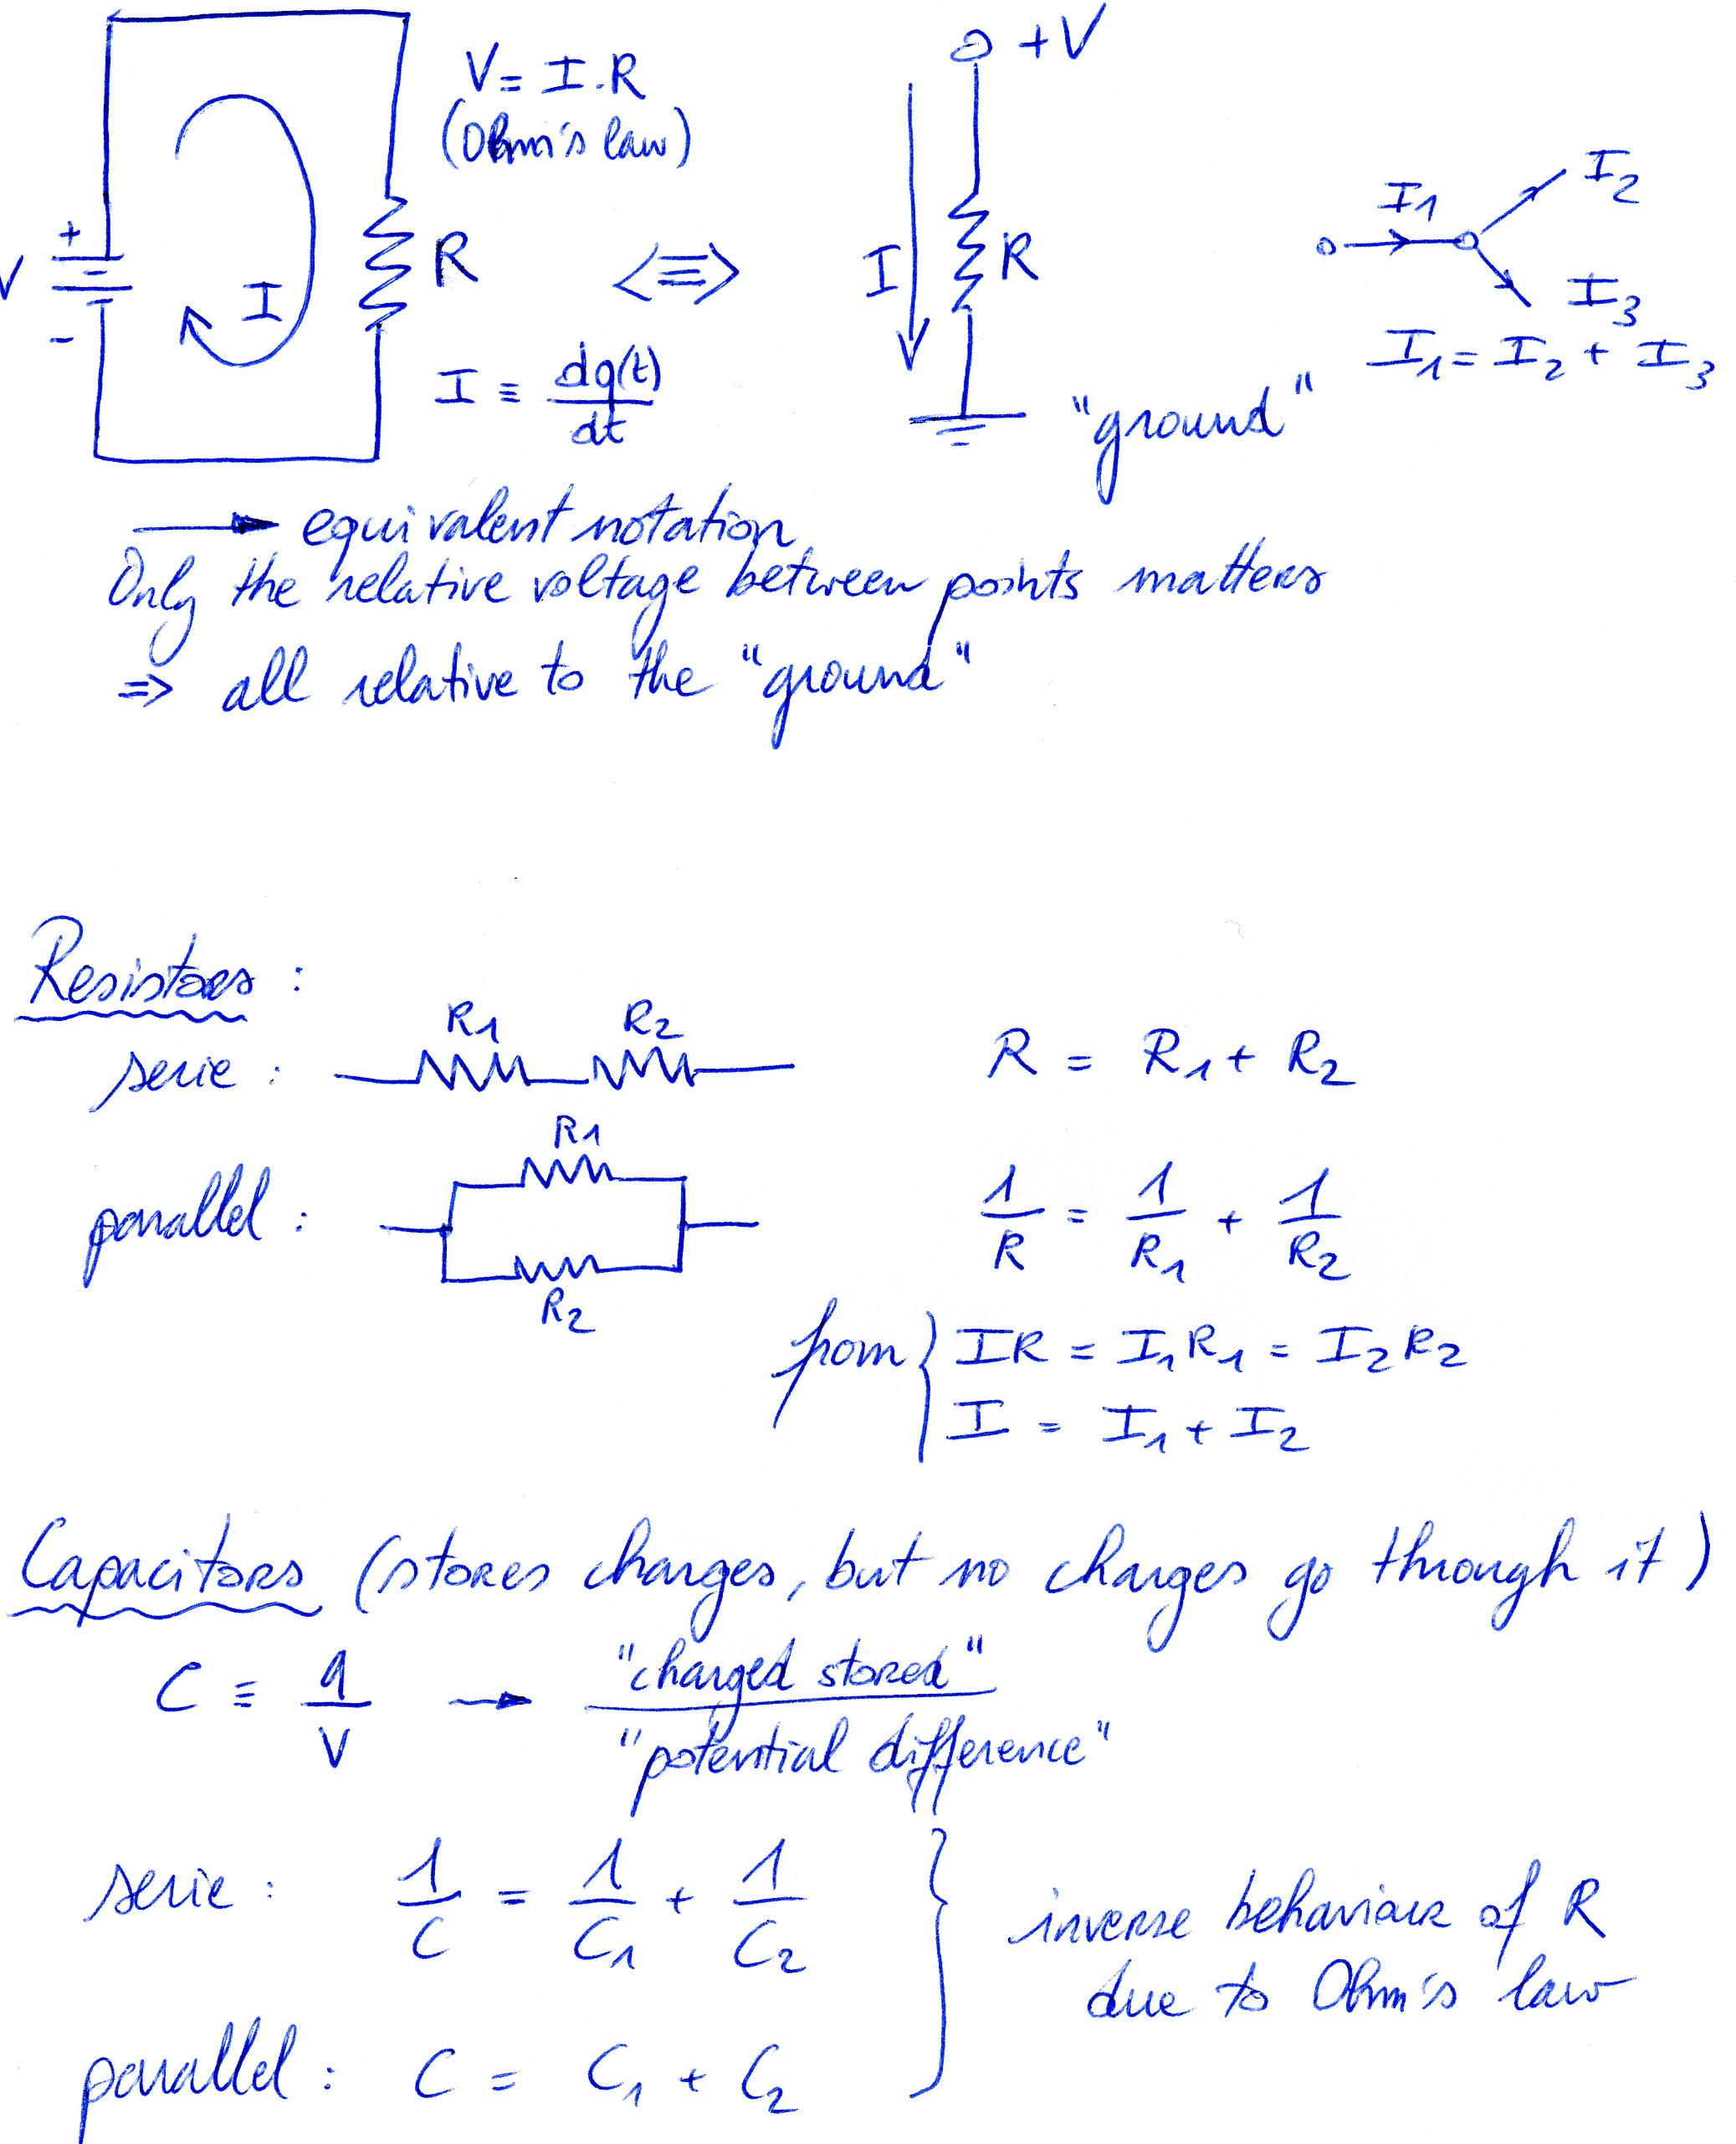 V = I . R
(Ohm's law)
+
V
-
I
R
I ≡ dq(t)/dt
<=>
+V
I
R
"ground"
I1
I2
I3
I1 = I2 + I3
→ equivalent notation
Only the relative voltage between points matters
=> all relative to the "ground"
Resistors :
R1 R2
serie : R = R1 + R2
R1
parallel : 1/R = 1/R1 + 1/R2
R2
from { IR = I1R1 = I2R2
I = I1 + I2
Capacitors (stores charges, but no charges go through it)
C ≡ q/V → "charged stored" / "potential difference"
serie : 1/C = 1/C1 + 1/C2
} inverse behaviour of R
due to Ohm's law
parallel : C = C1 + C2